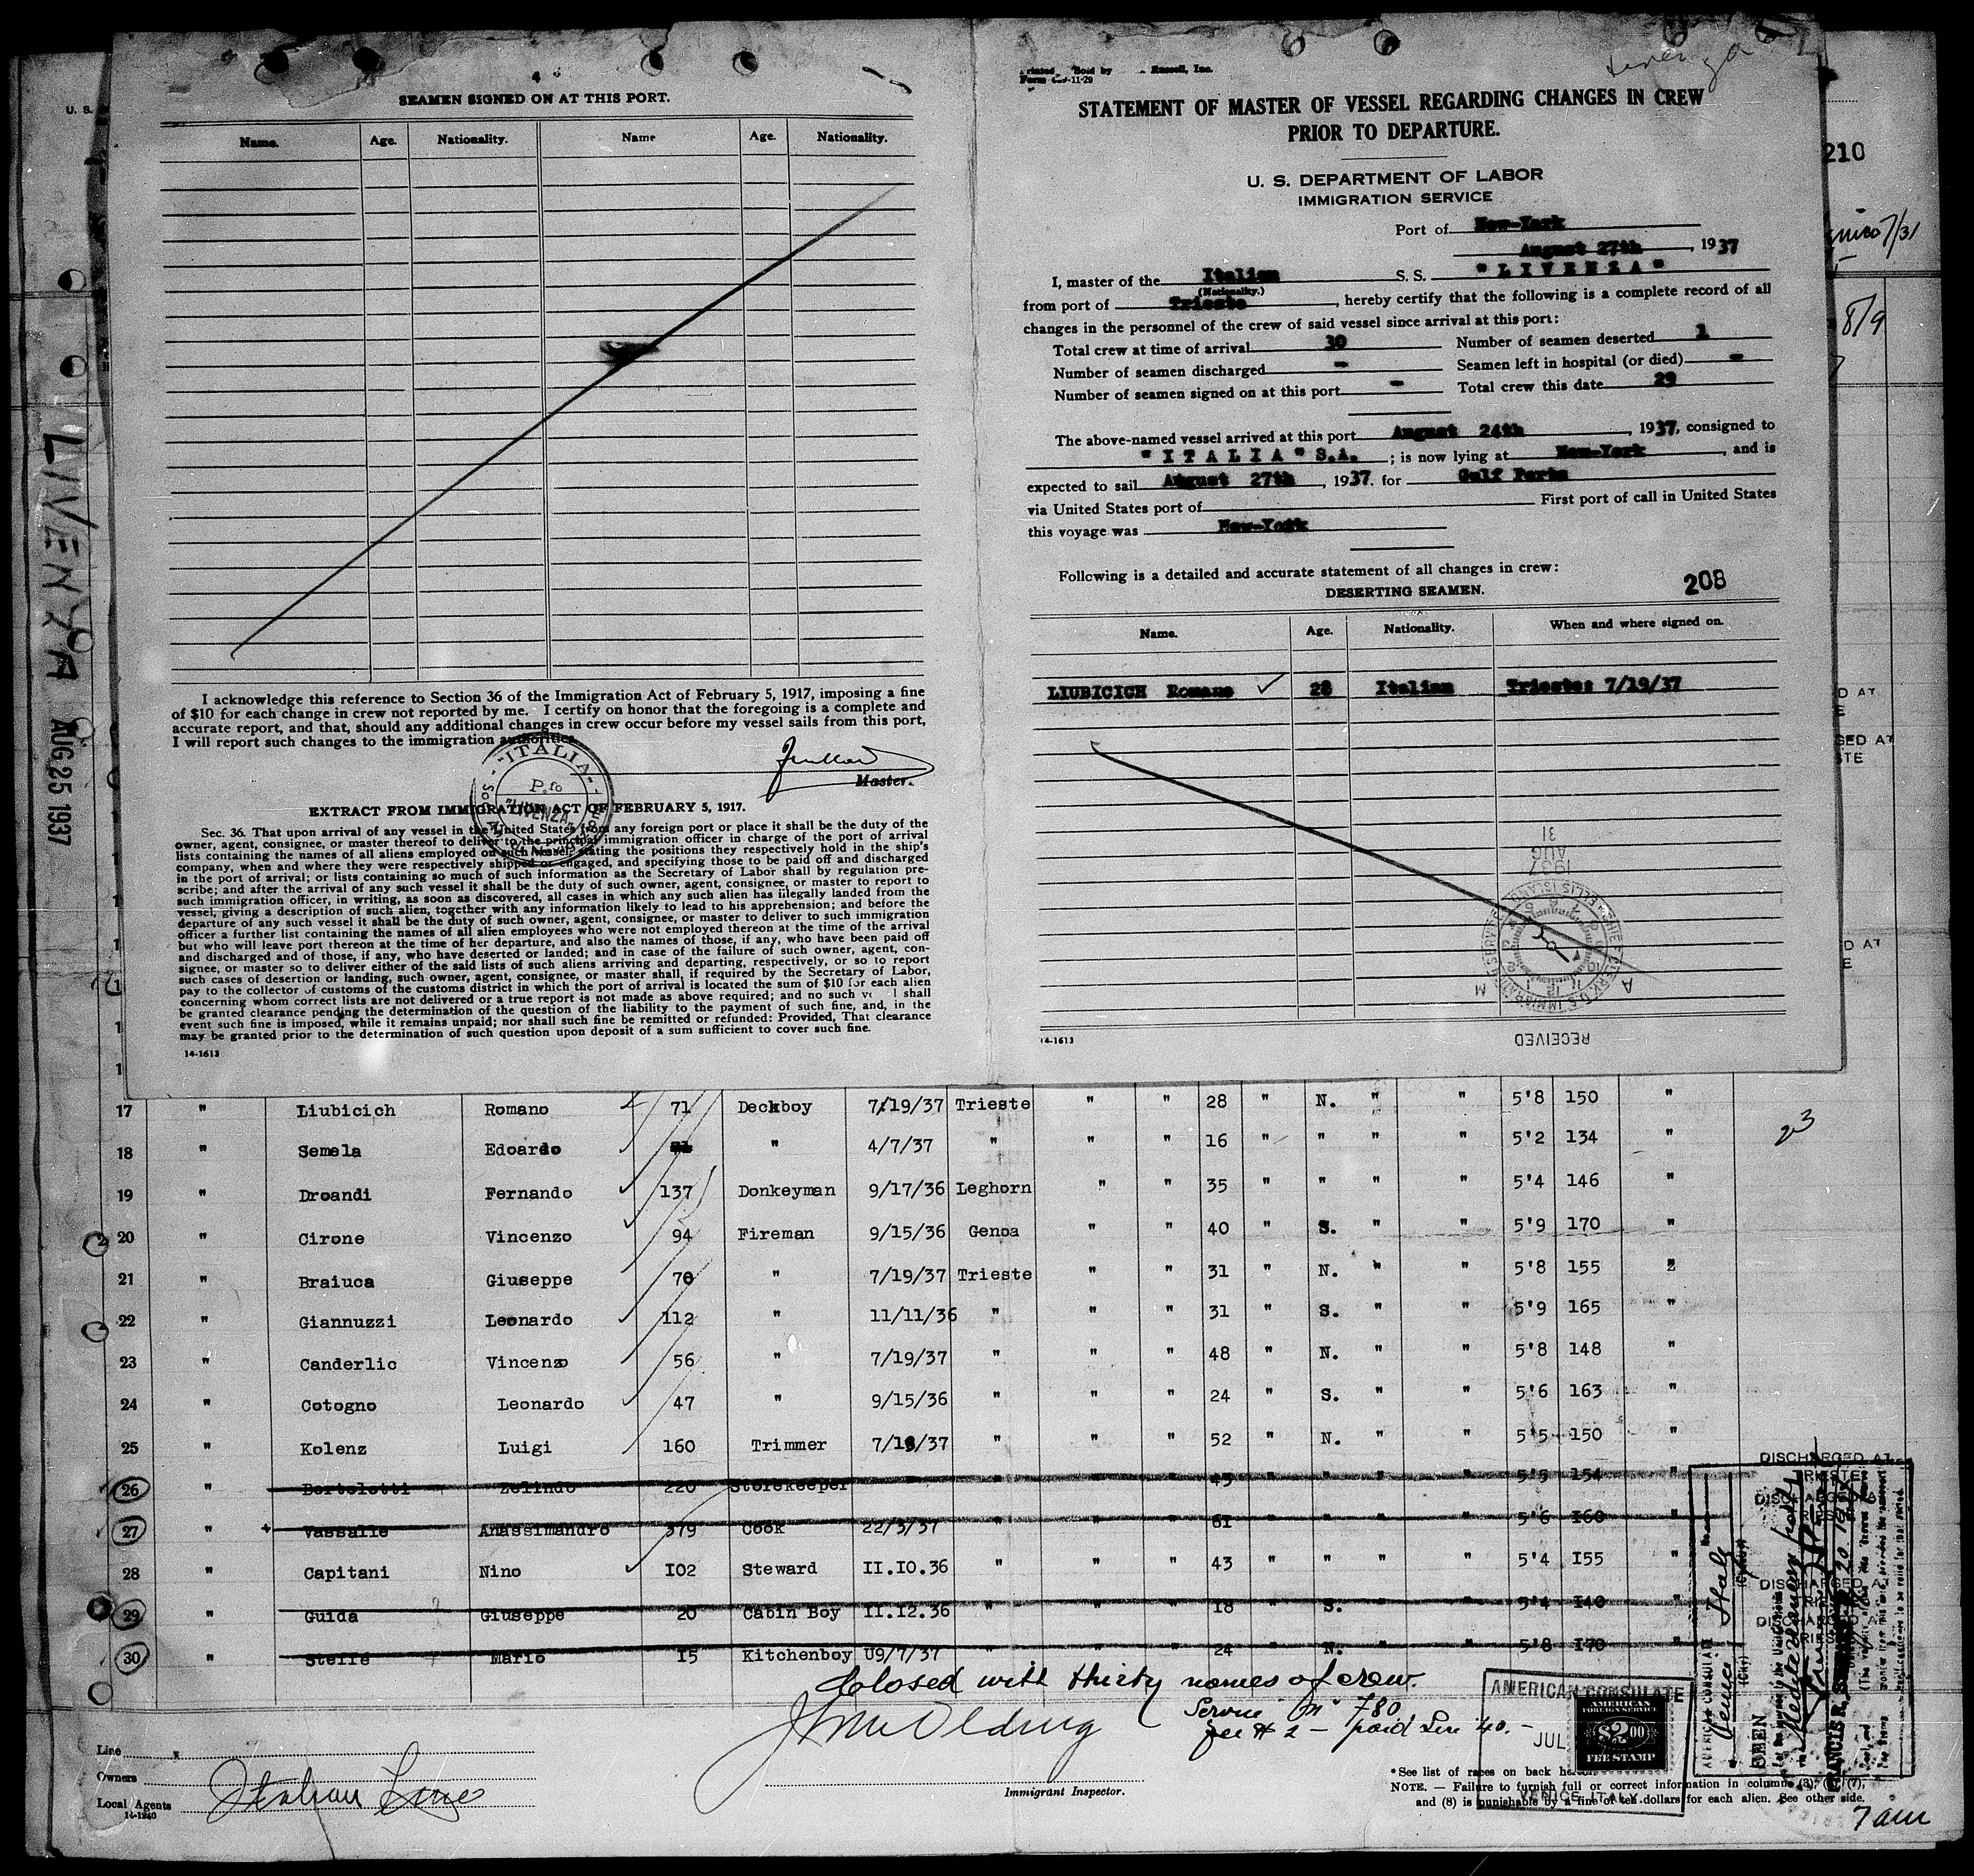 U. S.
4
SEAMEN SIGNED ON AT THIS PORT.
Name. Age. Nationality. Name Age. Nationality.
I acknowledge this reference to Section 36 of the Immigration Act of February 5, 1917, imposing a fine
of $10 for each change in crew not reported by me. I certify on honor that the foregoing is a complete and
accurate report, and that, should any additional changes in crew occur before my vessel sails from this port,
I will report such changes to the immigration authorities.
Master.
"ITALIA"
P.fo
"LIVENZA"
EXTRACT FROM IMMIGRATION ACT OF FEBRUARY 5, 1917.
Sec. 36. That upon arrival of any vessel in the United States from any foreign port or place it shall be the duty of the
owner, agent, consignee, or master thereof to deliver to the principal immigration officer in charge of the port of arrival
lists containing the names of all aliens employed on such vessel, stating the positions they respectively hold in the ship's
company, when and where they were respectively shipped or engaged, and specifying those to be paid off and discharged
in the port of arrival; or lists containing so much of such information as the Secretary of Labor shall by regulation pre-
scribe; and after the arrival of any such vessel it shall be the duty of such owner, agent, consignee, or master to report to
such immigration officer, in writing, as soon as discovered, all cases in which any such alien has illegally landed from the
vessel, giving a description of such alien, together with any information likely to lead to his apprehension; and before the
departure of any such vessel it shall be the duty of such owner, agent, consignee, or master to deliver to such immigration
officer a further list containing the names of all alien employees who were not employed thereon at the time of the arrival
but who will leave port thereon at the time of her departure, and also the names of those, if any, who have been paid off
and discharged and of those, if any, who have deserted or landed; and in case of the failure of such owner, agent, con-
signee, or master so to deliver either of the said lists of such aliens arriving and departing, respectively, or so to report
such cases of desertion or landing, such owner, agent, consignee, or master shall, if required by the Secretary of Labor,
pay to the collector of customs of the customs district in which the port of arrival is located the sum of $10 for each alien
concerning whom correct lists are not delivered or a true report is not made as above required; and no such ve l shall
be granted clearance pending the determination of the question of the liability to the payment of such fine, and, in the
event such fine is imposed, while it remains unpaid; nor shall such fine be remitted or refunded: Provided, That clearance
may be granted prior to the determination of such question upon deposit of a sum sufficient to cover such fine.
14-1613
LIVENZA AUG 25 1937
Russell, Inc.
Livenza
STATEMENT OF MASTER OF VESSEL REGARDING CHANGES IN CREW
PRIOR TO DEPARTURE.
U. S. DEPARTMENT OF LABOR
IMMIGRATION SERVICE
Port of New-York
August 27th, 1937
I, master of the Italian S. S. "LIVENZA"
(Nationality.)
from port of Trieste, hereby certify that the following is a complete record of all
changes in the personnel of the crew of said vessel since arrival at this port:
Total crew at time of arrival 30 Number of seamen deserted 1
Number of seamen discharged - Seamen left in hospital (or died) -
Number of seamen signed on at this port - Total crew this date 29
The above-named vessel arrived at this port August 24th, 1937, consigned to
"ITALIA" S.A.; is now lying at New-York, and is
expected to sail August 27th, 1937. for Gulf Ports
via United States port of First port of call in United States
this voyage was New-York
Following is a detailed and accurate statement of all changes in crew:
208
DESERTING SEAMEN.
Name. Age. Nationality. When and where signed on.
LIUBICICH Romano ✓ 28 Italian Trieste: 7/19/37
1937
AUG
31
RECEIVED
14-1613
210
7/31
8/9
17 " Liubicich Romano 71 Deckboy 7/19/37 Trieste " " 28 " N. " " 5'8 150 "
18 " Semela Edoardo " 4/7/37 " " " 16 " " " " 5'2 134 "
23
19 " Droandi Fernando 137 Donkeyman 9/17/36 Leghorn " " 35 " " " " 5'4 146 "
20 " Cirone Vincenzo 94 Fireman 9/15/36 Genoa " " 40 " S. " " 5'9 170 "
21 " Braiuca Giuseppe 70 " 7/19/37 Trieste " " 31 " N. " " 5'8 155 "
22 " Giannuzzi Leonardo 112 " 11/11/36 " " " 31 " S. " " 5'9 165 "
23 " Canderlic Vincenzo 56 " 7/19/37 " " " 48 " N. " " 5'8 148 "
24 " Cotogno Leonardo 47 " 9/15/36 " " " 24 " S. " " 5'6 163 "
25 " Kolenz Luigi 160 Trimmer 7/19/37 " " " 52 " N. " " 5'5 150 "
26 " Bortolotti Zelindo 220 Storekeeper " " " 45 " " " " 5'5 154 "
27 " Vassalle Anassimandro 379 Cook 22/3/37 " " " 61 " " " " 5'6 160 "
28 " Capitani Nino 102 Steward II.10.36 " " " 43 " " " " 5'4 155 "
29 " Guida Giuseppe 20 Cabin Boy II.12.36 " " " 18 " S. " " 5'4 140 "
30 " Steffé Mario 15 Kitchenboy U9/7/37 " " " 24 " N. " " 5'8 170 "
DISCHARGED AT
TRIESTE
Closed with thirty names of crew.
Service No 780
fee # 2 - paid Lire 40.-
AMERICAN CONSULATE
JUL
AMERICAN
FOREIGN SERVICE
$2.00
FEE STAMP
VENICE, ITALY.
AMERICAN CONSULATE
Venice Italy
(City) (Country)
SEEN
Mediterranean ports
Line
Owners
Local Agents Italian Line
14-1240
Immigrant Inspector.
*See list of races on back hereof.
NOTE. — Failure to furnish full or correct information in columns (3), (7),
and (8) is punishable by a fine of ten dollars for each alien. See other side.
7 am